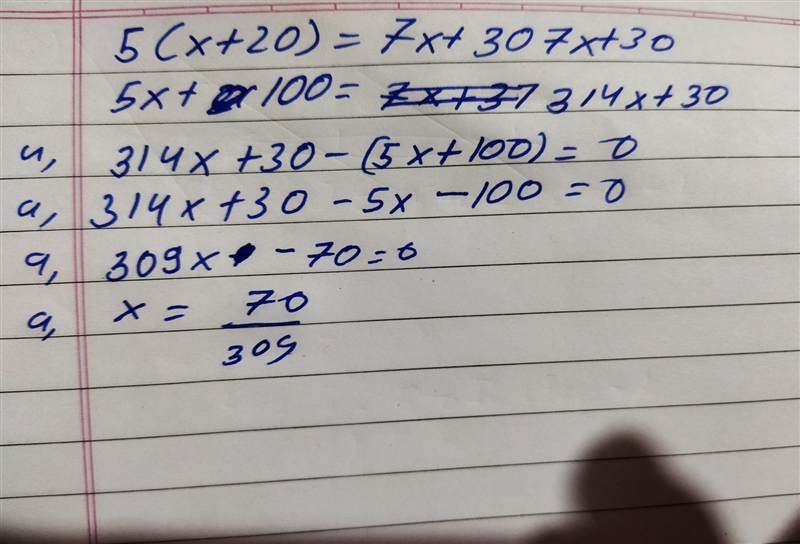 5(x+20) = 7x+307x+30
5x+100= 314x+30
a, 314x+30-(5x+100)=0
a, 314x+30-5x-100=0
a, 309x-70=0
a, x = 70/309